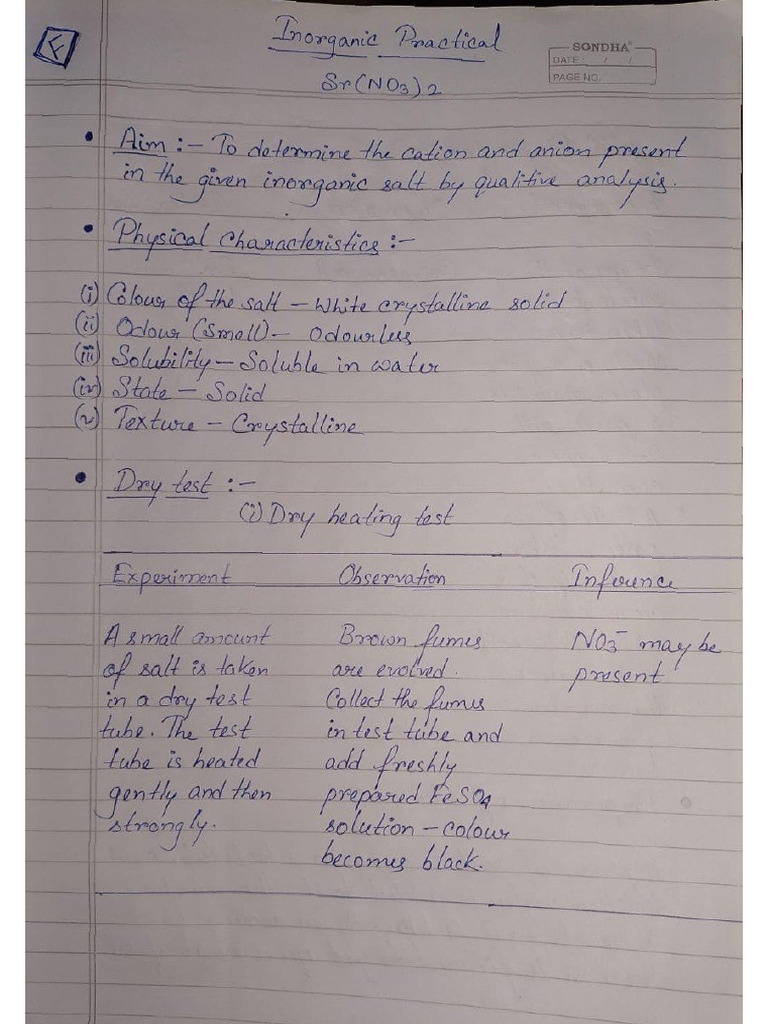 Inorganic Practical
Sr(NO3)2
SONDHA
DATE: / /
PAGE NO.
• Aim :- To determine the cation and anion present
in the given inorganic salt by qualitive analysis.
• Physical Characteristics :-
(i) Colour of the salt - White crystalline solid
(ii) Odour (smell) - Odourless
(iii) Solubility - Soluble in water
(iv) State - Solid
(v) Texture - Crystalline
• Dry test :-
(i) Dry heating test
Experiment Observation Inference
A small amount Brown fumes NO3- may be
of salt is taken are evolved. present
in a dry test Collect the fumes
tube. The test in test tube and
tube is heated add freshly
gently and then prepared FeSO4
strongly. solution - colour
becomes black.